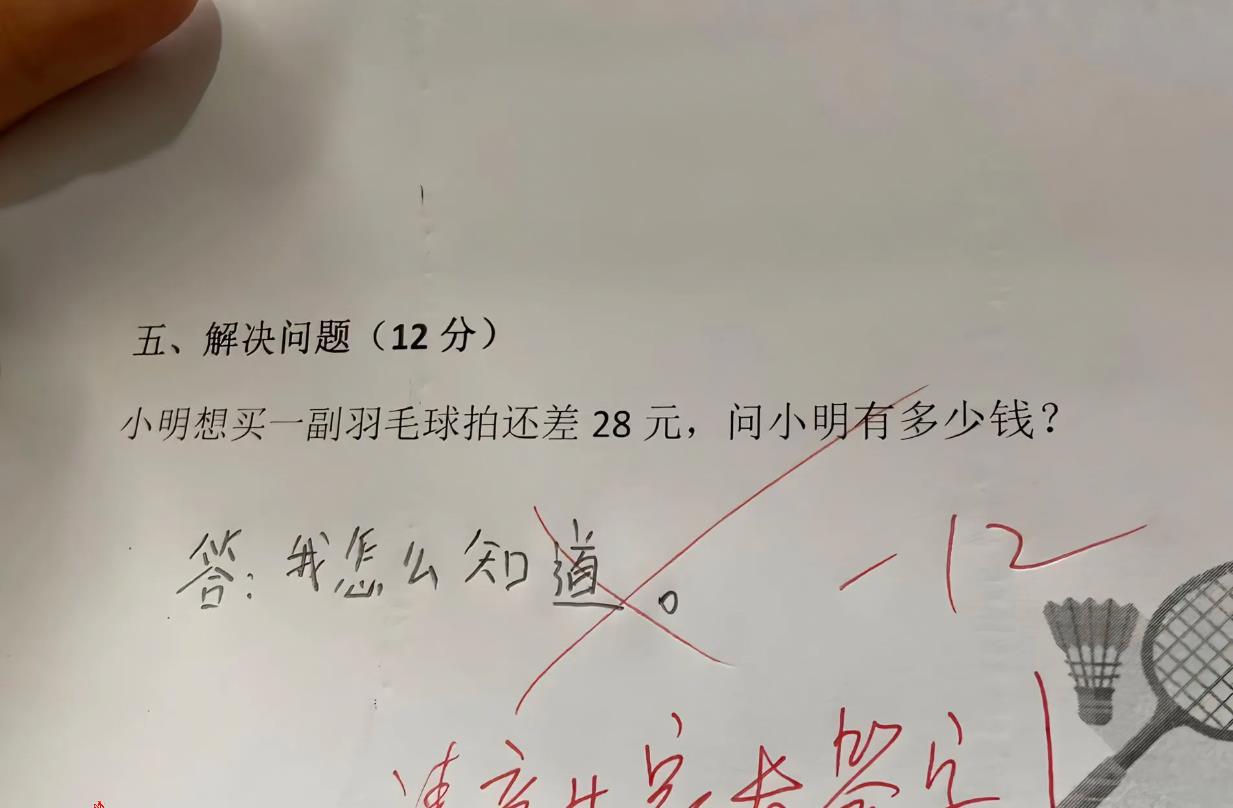 五、解决问题（12 分）
小明想买一副羽毛球拍还差 28 元，问小明有多少钱？
答：我怎么知道。
-12
请产生家长签字！